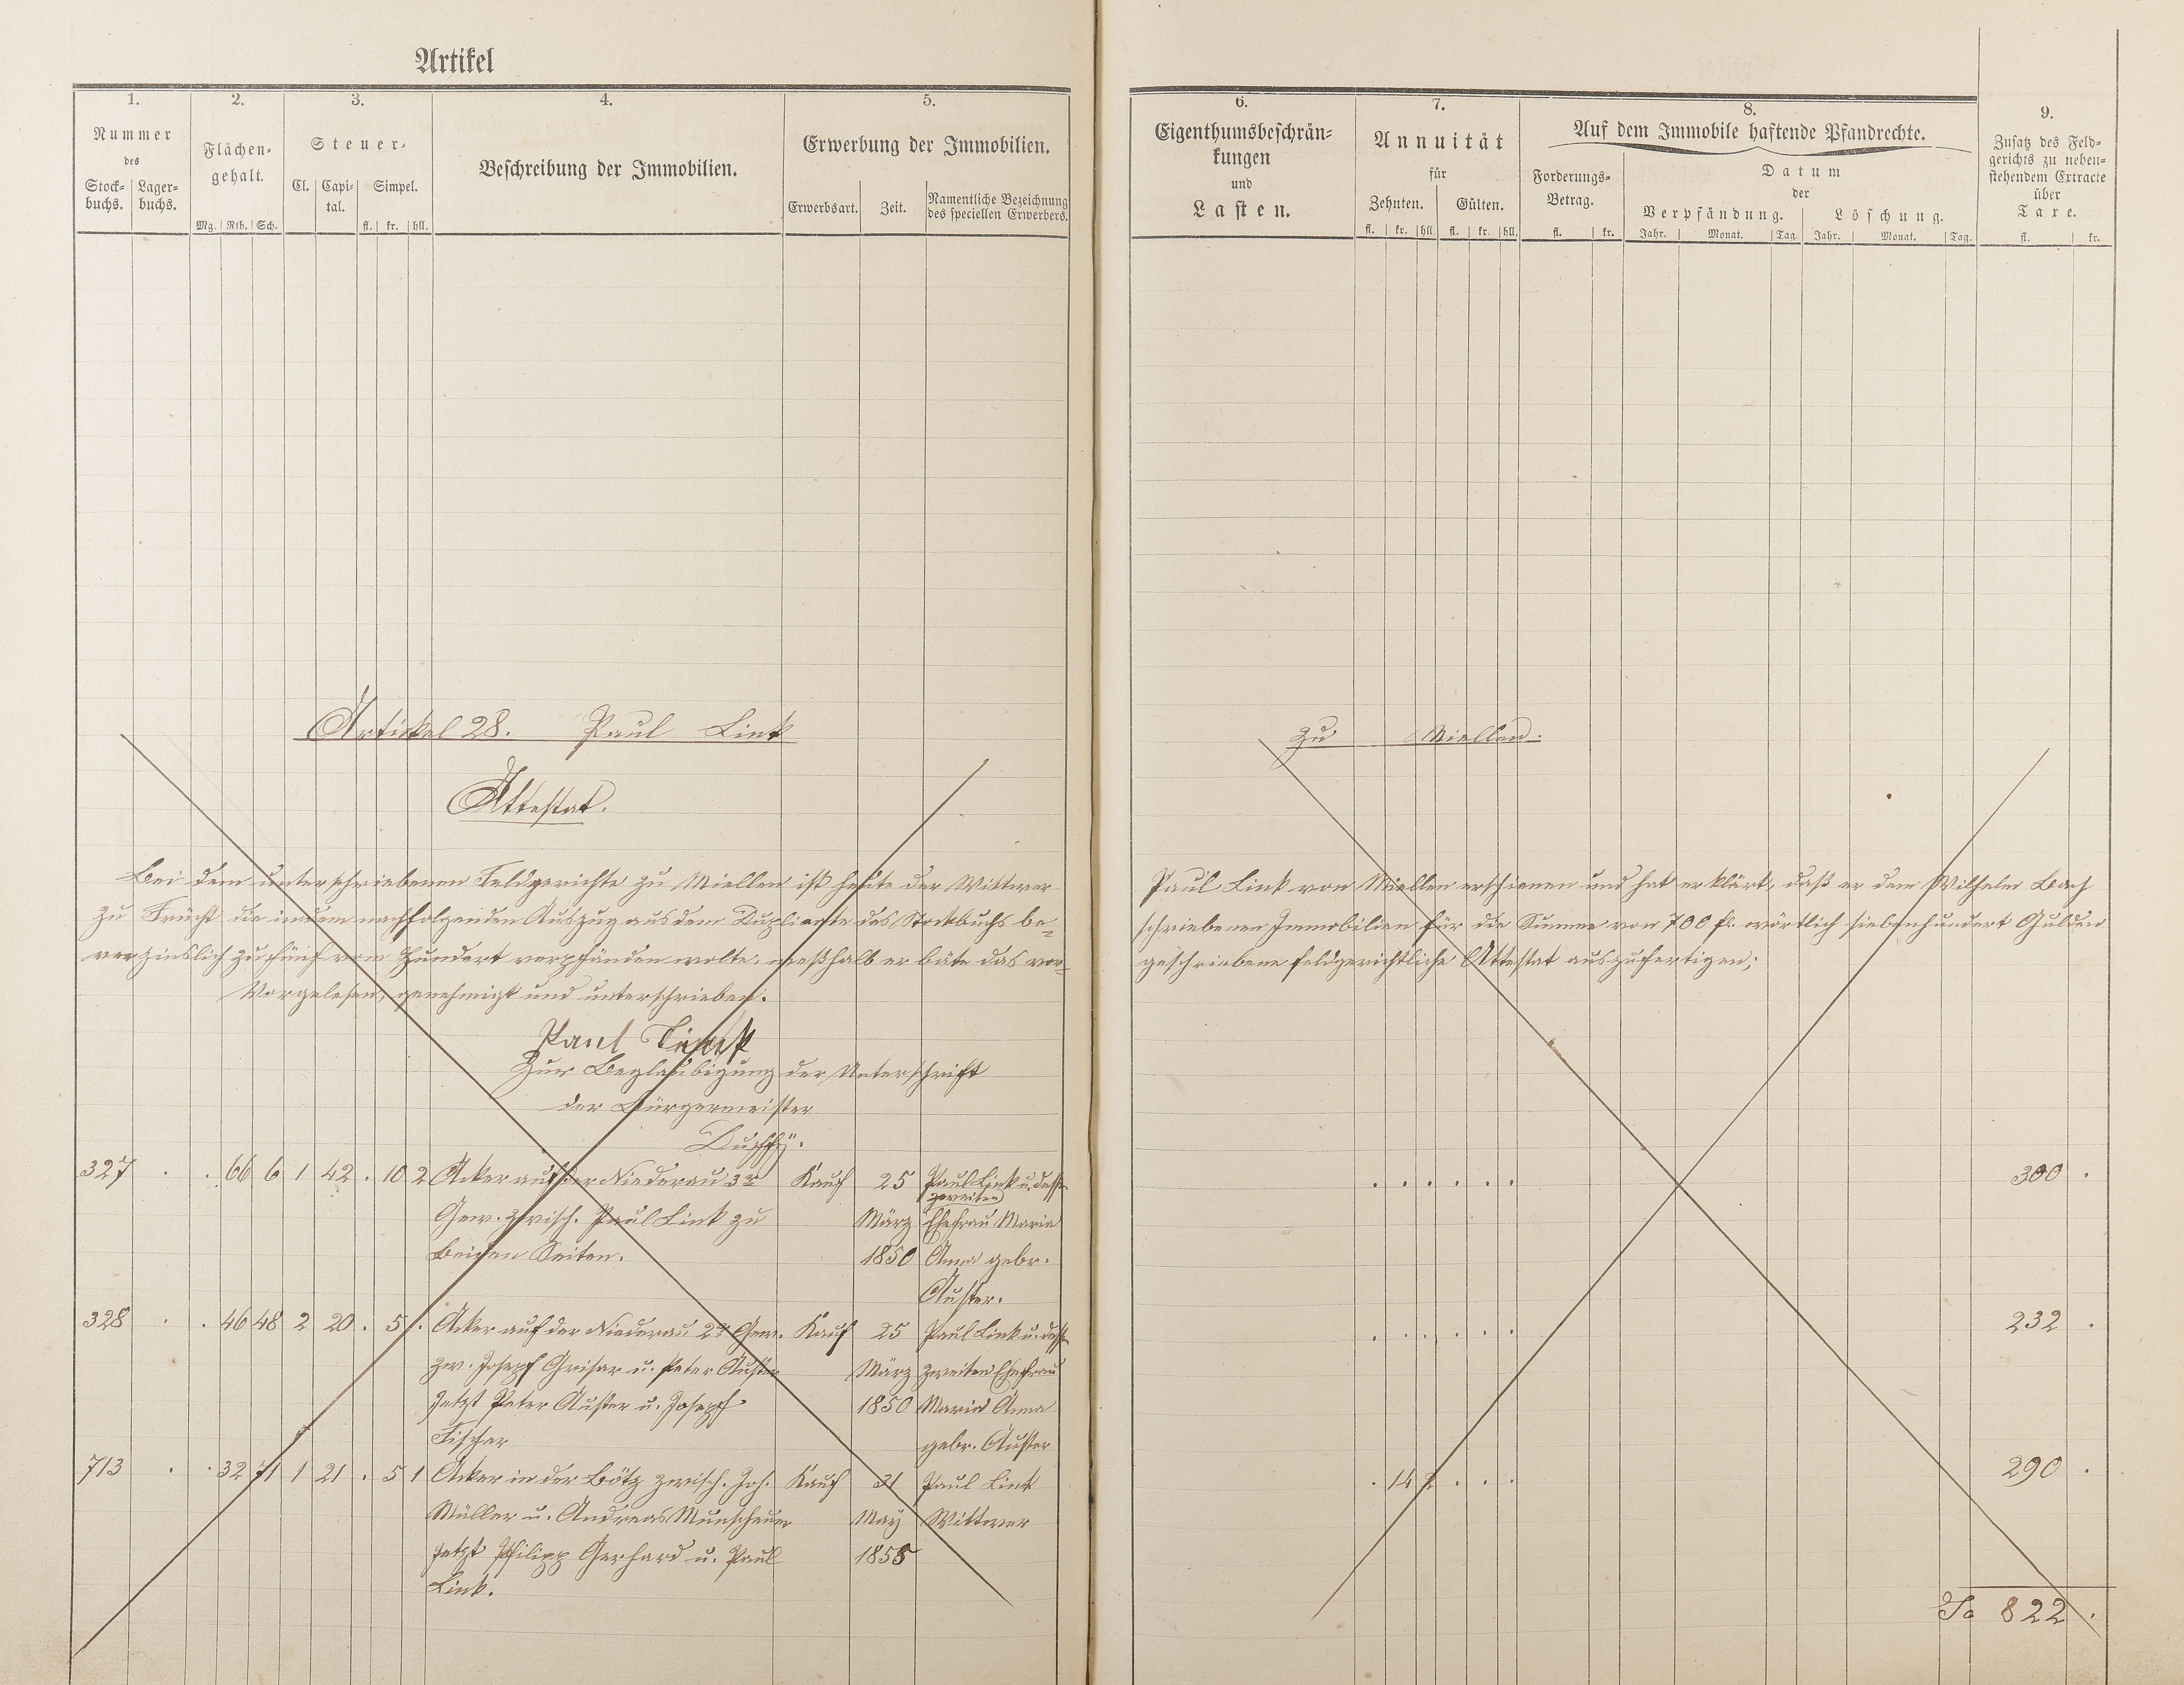 Artikel
1. 2. 3. 4. 5.
Nummer
des
Stock- buchs. Lager- buchs.
Flächen- gehalt.
Mg. Rth. Sch.
Steuer-
Cl. Capi- tal. Simpel.
fl. kr. hll.
Beschreibung der Immobilien.
Erwerbung der Immobilien.
Erwerbsart. Zeit. Namentliche Bezeichnung des speciellen Erwerbers.
6. 7. 8. 9.
Eigenthumsbeschrän-
kungen
und
Lasten.
Annuität
für
Zehnten. Gülten.
fl. kr. hll. fl. kr. hll.
Auf dem Immobile haftende Pfandrechte.
Forderungs- Betrag.
fl. kr.
Datum
der
Verpfändung. Löschung.
Jahr. Monat. Tag. Jahr. Monat. Tag.
Zusatz des Feld-
gerichts zu neben-
stehendem Extracte
über
Taxe.
fl. kr.
Artikel 28. Paul Link zu Miellen.
Attestat.
Bei dem unterschriebenen Feldgerichte zu Miellen ist heute der Wittwer Paul Link von Miellen erschienen und hat erklärt, daß er dem Wilhelm Bach
zu Frücht die in dem nachfolgenden Auszug aus dem Duplicate des Stockbuchs be- schriebenen Immobilien für die Summe von 700 fl. wörtlich siebenhundert Gulden
verzinslich zu fünf vom Hundert verpfänden wolle, weßhalb er bäte das vor- geschriebene feldgerichtliche Attestat auszufertigen;
Vorgelesen, genehmigt und unterschrieben.
Paul Linck
Zur Beglaubigung der Unterschrift
der Bürgermeister
327 . . 66 6 1 42 . 10 2 Acker auf der Niederau 3r Kauf 25 Paul Link u. dess. . . . . . . 300 .
zweiten
Gew. zwisch. Paul Link zu März Ehefrau Maria
beiden Seiten. 1850 Anna gebr.
Auster.
328 . . 46 48 2 20 . 5 . Acker auf der Niederau 2r Gew. Kauf 25 Paul Link u. dess. . . . . . . 232 .
zw. Joseph Grisar u. Peter Auster März zweiten Ehefrau
jetzt Peter Auster u. Joseph 1850 Maria Anna
Fischer gebr. Auster
713 . . 32 71 1 21 . 5 1 Acker in der Bötz zwisch. Joh. Kauf 31 Paul Link . 14 2 . . . 290 .
Müller u. Andreas Munscheuer May Wittwer
jetzt Philipp Gerhard u. Paul 1855
Link.
Sa 822 .